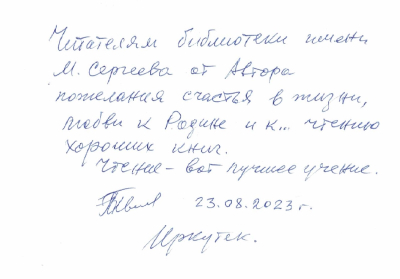 Читателям библиотеки имени
М. Сергеева от Автора
пожелания счастья в жизни,
любви к Родине и к... чтению
хороших книг.
Чтение - вот лучшее учение.
23.08.2023 г.
Иркутск.